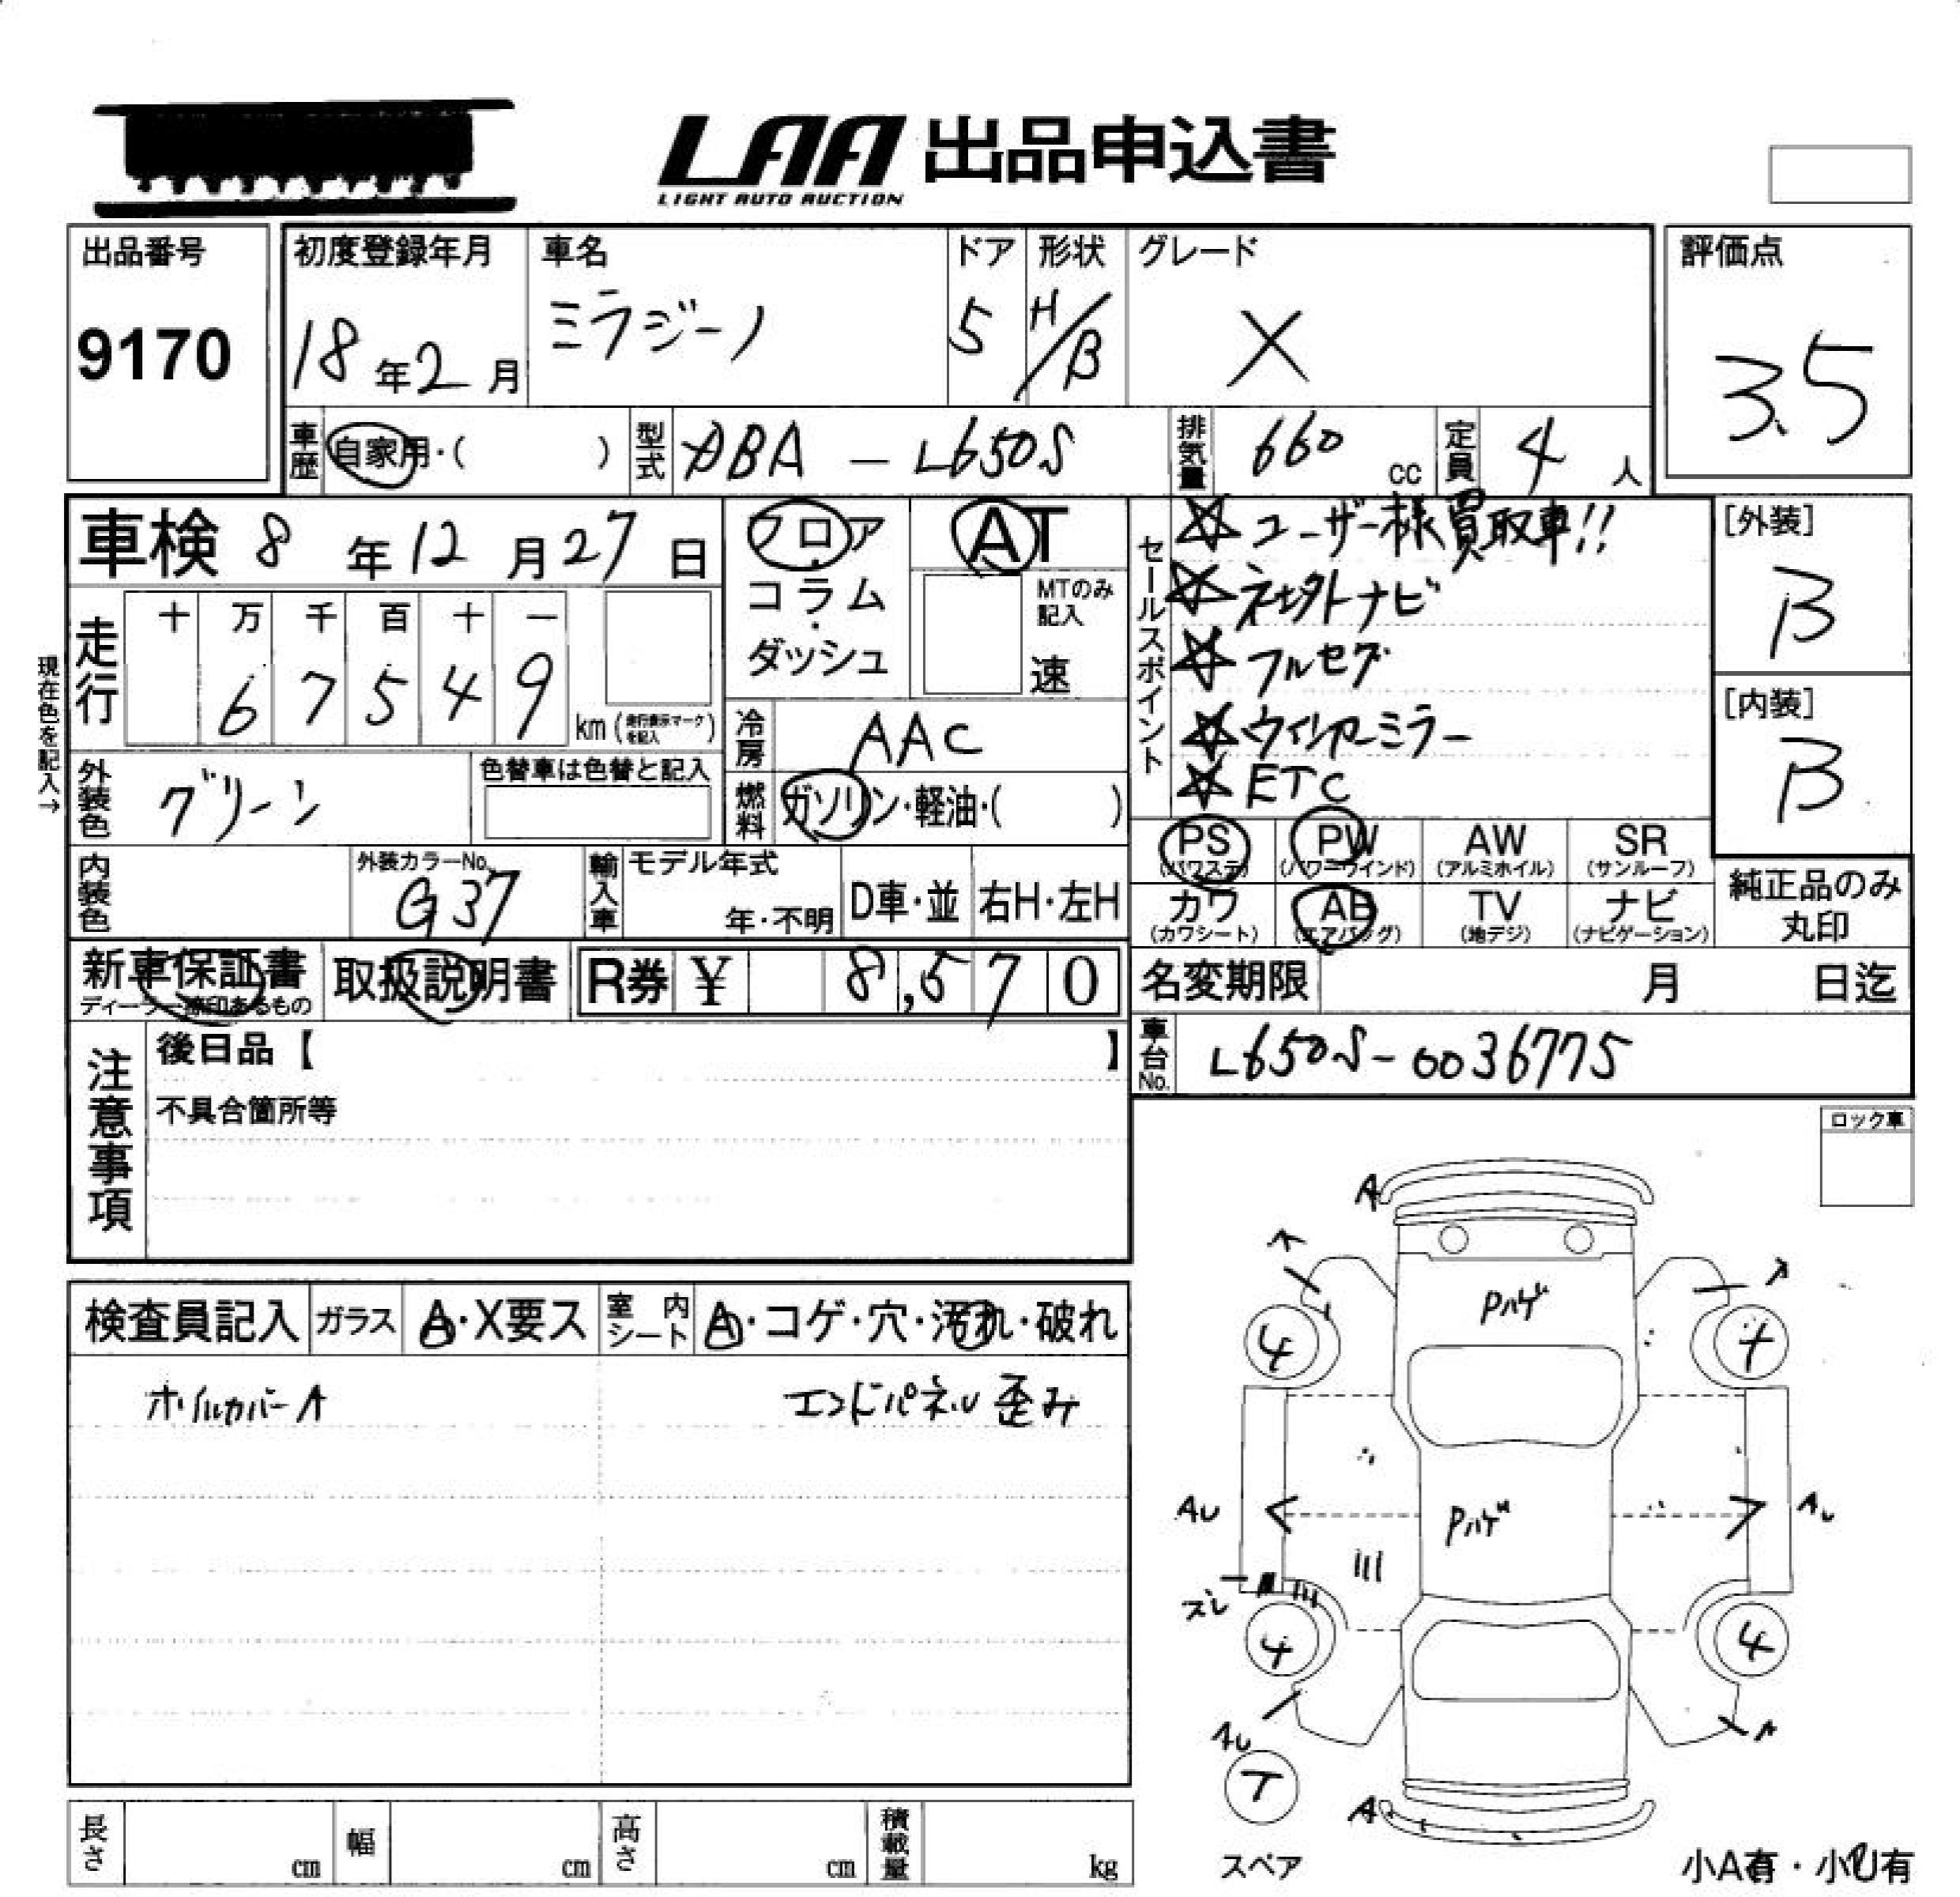 LAA 出品申込書
LIGHT AUTO AUCTION
出品番号
9170
初度登録年月
18年2月
車名
ミラジーノ
ドア
5
形状
H/B
グレード
X
評価点
3.5
車歴 自家用・( )
型式 DBA - L650S
排気量 660 cc
定員 4 人
車検 8年12月27日
フロア・コラム・ダッシュ
AT
MTのみ記入
速
セールスポイント
☆ユーザー様買取車!!
☆社外ナビ
☆フルセグ
☆ウィンカーミラー
☆ETC
[外装]
B
[内装]
B
現在色を記入→
走行
十 万 千 百 十 一
6 7 5 4 9
km (走行表示マークを記入)
冷房 AAC
外装色 グリーン
色替車は色替と記入
燃料 ガソリン・軽油・( )
PS (パワステ) PW (パワーウインド) AW (アルミホイル) SR (サンルーフ)
カワ (カワシート) AB (エアバッグ) TV (地デジ) ナビ (ナビゲーション)
純正品のみ丸印
内装色
外装カラーNo. G37
輸入車 モデル年式 年・不明 D車・並 右H・左H
新車保証書
取扱説明書
R券 ¥ 8,570
名変期限 月 日迄
車台No. L650S-0036775
注意事項
後日品【 】
不具合箇所等
ロック車
検査員記入 ガラス A・X要ス 室内シート A・コゲ・穴・汚れ・破れ
ホイルカバーA
エンドパネル歪み
A
A A
Pハゲ
4 4
AU Pハゲ AU
スレ
4 4
AU A
T
A
スペア
小A有・小U有
長さ cm 幅 cm 高さ cm 積載量 kg